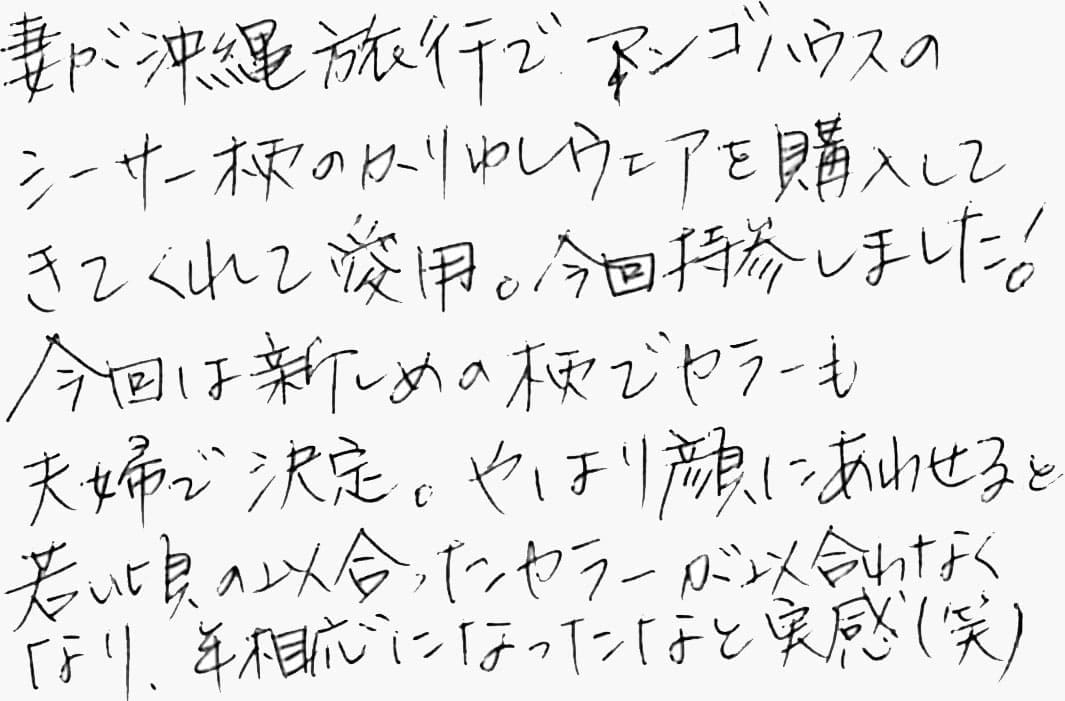 妻が沖縄旅行で マンゴハウスの
シーサー柄のかりゆしウェアを購入して
きてくれて愛用。今回持参しました!
今回は新しめの柄でカラーも
夫婦で決定。やはり顔にあわせると
若い頃の似合ったカラーが似合わなく
なり、年相応になったなと実感(笑)